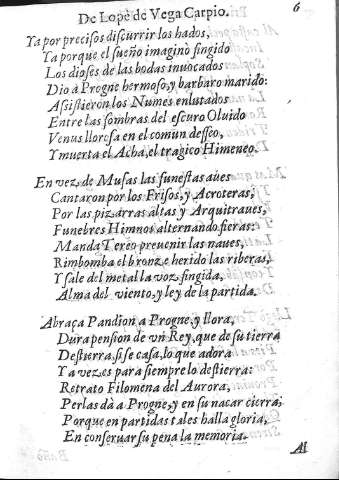 De Lope de Vega Carpio. 6
Ya por precisos discurrir los hados,
Ya porque el sueño imaginò fingido
Los dioses de las bodas inuocados
Dio à Progne hermoso, y barbaro marido:
Assistieron los Numes enlutados
Entre las sombras del escuro Oluido
Venus llorosa en el comun desseo,
Y muerta el Acha, el tragico Himeneo.
En vez de Musas las funestas aues
Cantaron por los Frisos, y Acroteras;
Por las pizarras altas y Arquitraues,
Funebres Himnos alternando fieras:
Manda Tereo preuenir las naues,
Rimbomba el bronze herido las riberas,
Y sale del metal la voz fingida,
Alma del viento, y ley de la partida.
Abraça Pandion a Progne, y llora,
Dura pension de vn Rey, que de su tierra
Destierra, si se casa, lo que adora
Ya vezes para siempre lo destierra:
Retrato Filomena del Aurora,
Perlas dà a Progne, y en su nacar cierra,
Porque en partidas tales halla gloria,
En conseruar su pena la memoria.
Al